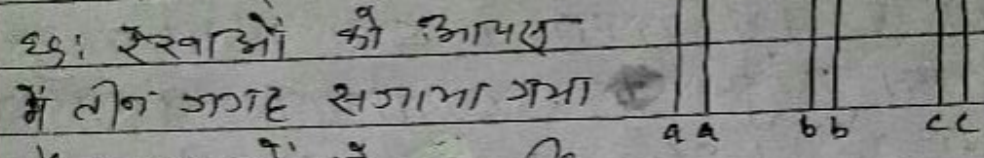 छः रेखाओं को आपस
में तीन जगह सजाया गया
a a b b c c